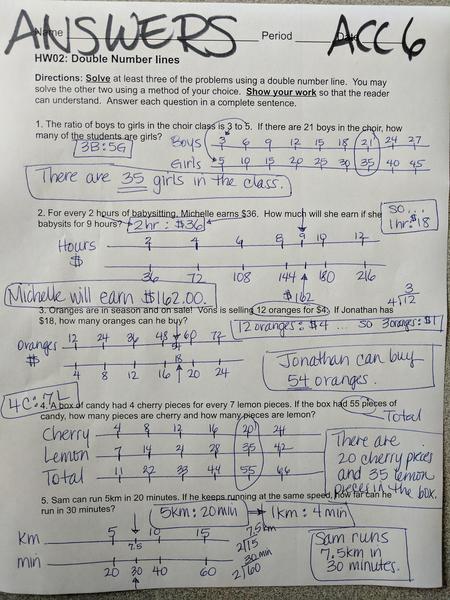 ANSWERS ACC 6
Name Period Date
HW02: Double Number lines
Directions: Solve at least three of the problems using a double number line. You may
solve the other two using a method of your choice. Show your work so that the reader
can understand. Answer each question in a complete sentence.
1. The ratio of boys to girls in the choir class is 3 to 5. If there are 21 boys in the choir, how
many of the students are girls?
3B:5G
Boys 3 6 9 12 15 18 21 24 27
Girls 5 10 15 20 25 30 35 40 45
There are 35 girls in the class.
2. For every 2 hours of babysitting, Michelle earns $36. How much will she earn if she
babysits for 9 hours?
2hr : $36
so...
1hr: $18
Hours 2 4 6 8 9 10 12
$ 36 72 108 144 180 216
$162
Michelle will earn $162.00.
3
4√12
3. Oranges are in season and on sale! Vons is selling 12 oranges for $4. If Jonathan has
$18, how many oranges can he buy?
12 oranges: $4 ... so 3 oranges: $1
oranges 12 24 36 48 54 60 72
$ 4 8 12 16 18 20 24
Jonathan can buy
54 oranges.
4C:7L
4. A box of candy had 4 cherry pieces for every 7 lemon pieces. If the box had 55 pieces of
candy, how many pieces are cherry and how many pieces are lemon?
Total
Cherry 4 8 12 16 20 24
Lemon 7 14 21 28 35 42
Total 11 22 33 44 55 66
There are
20 cherry pieces
and 35 lemon
pieces in the box.
5. Sam can run 5km in 20 minutes. If he keeps running at the same speed, how far can he
run in 30 minutes?
5km: 20min → 1km: 4min
km 5 7.5 10 15
min 20 30 40 60
7.5km
2√15
30 min
2√60
Sam runs
7.5km in
30 minutes.